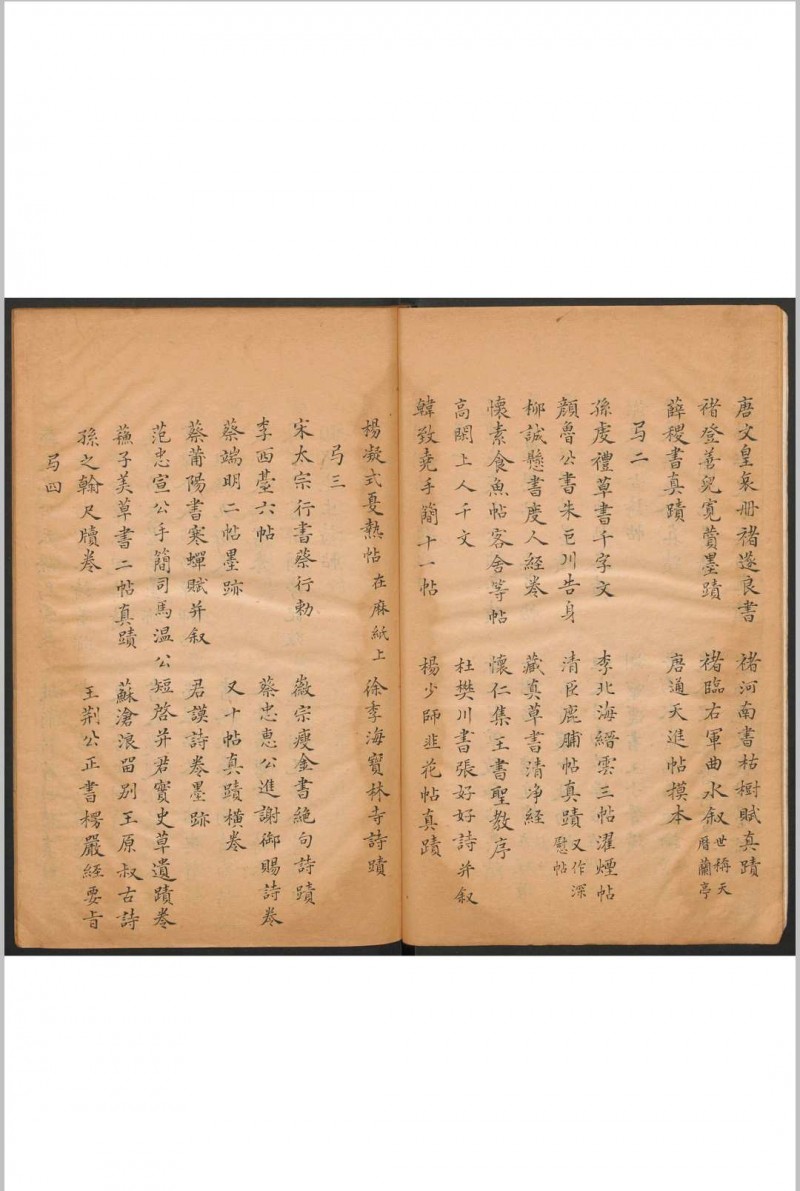 唐文皇哀冊褚遂良書　褚河南書枯樹賦真蹟
褚登善兒寬贊墨蹟　褚臨右軍曲水叙世稱天曆蘭亭
薛稷書真蹟　唐通天進帖模本
弓二
孫虔禮草書千字文　李北海縉雲三帖濯煙帖
顏魯公書朱巨川告身　清臣鹿脯帖真蹟又作深慰帖
柳誠懸書度人經卷　藏真草書清净經
懷素食魚帖客舍等帖　懷仁集王書聖教序
高閑上人千文　杜樊川書張好好詩并叙
韓致堯手簡十一帖　楊少師韭花帖真蹟
楊凝式夏熱帖在麻紙上　徐季海寶林寺詩蹟
弓三
宋太宗行書蔡行勅　徽宗瘦金書絕句詩蹟
李西臺六帖　蔡忠惠公進謝御賜詩卷
蔡端明二帖墨跡　又十帖真蹟橫卷
蔡莆陽書寒蟬賦并叙　君謨詩卷墨跡
范忠宣公手簡司馬溫公短啓并君實史草遺蹟卷
蘓子美草書二帖真蹟　蘇滄浪留別王原叔古詩
孫之翰尺牘卷　王荆公正書楞嚴經要旨
弓四